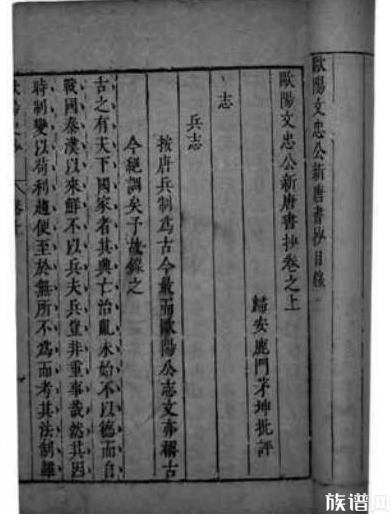 歐陽文忠公新唐書抄目錄
歐陽文忠公新唐書抄卷之上
歸安鹿門茅坤批評
志
兵志
按唐兵制為古今最而歐陽公志文亦稱古
今絕調矣予故錄之
古之有天下國家者其興亡治亂未始不以德而自
戰國秦漢以來鮮不以兵夫兵豈非重事哉然其因
時制變以苟利趨便至於無所不為而考其法制雖
族谱网